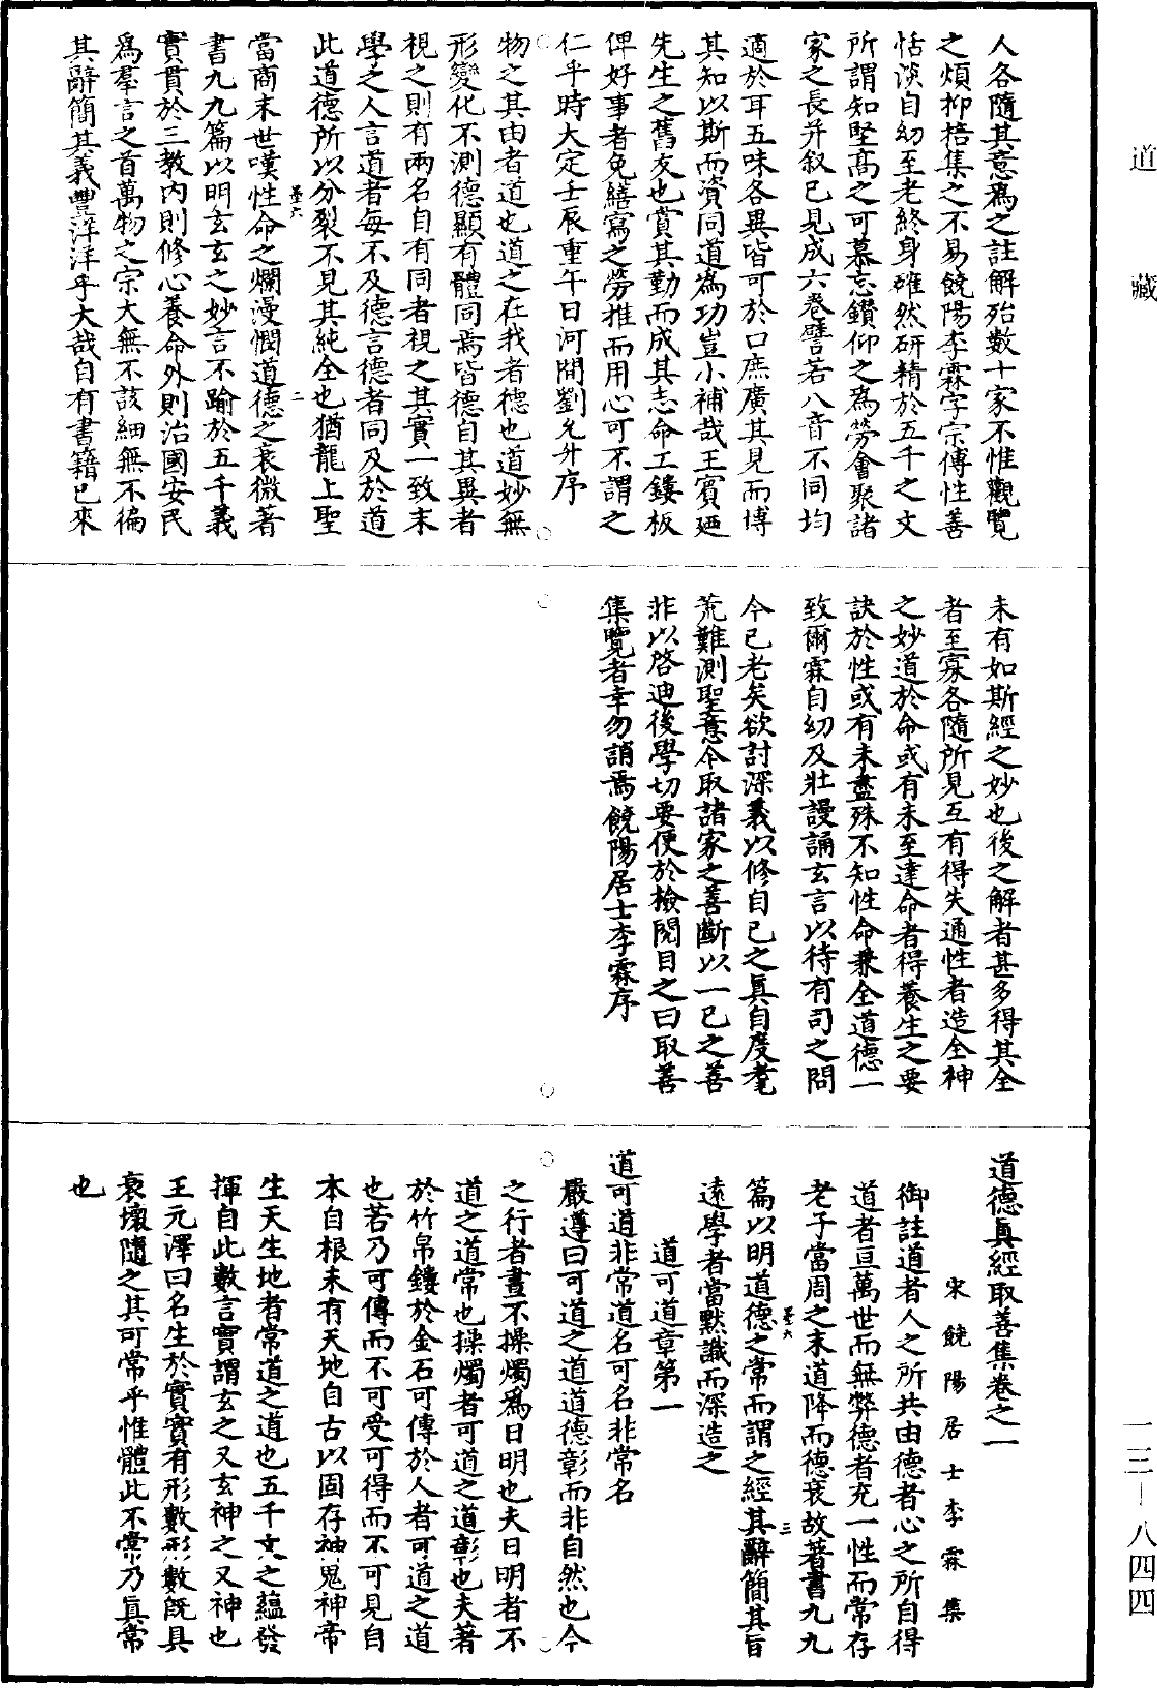 道藏
人各隨其意爲之註解殆數十家不惟觀覽
之煩抑捂集之不易饒陽李霖字宗傅性善
恬淡自幼至老終身確然研精於五千之文
所謂知堅高之可慕忘鑽仰之爲勞會聚諸
家之長并叙已見成六卷譬若八音不同均
適於耳五味各異皆可於口庶廣其見而博
其知以斯而資同道爲功豈小補哉王賓廼
先生之舊友也賞其勤而成其志命工鏤板
俾好事者免繕寫之勞推而用心可不謂之
仁乎時大定壬辰重午日河間劉允升序
物之其由者道也道之在我者德也道妙無
形變化不測德顯有體同焉皆德自其異者
視之則有兩名自有同者視之其實一致末
學之人言道者每不及德言德者同及於道
此道德所以分裂不見其純全也猶龍上聖
墨六 二
當商末世嘆性命之爛漫憫道德之衰微著
書九九篇以明玄玄之妙言不踰於五千義
實貫於三教內則修心養命外則治國安民
爲羣言之首萬物之宗大無不該細無不徧
其辭簡其義豐洋洋乎大哉自有書籍已來
未有如斯經之妙也後之解者甚多得其全
者至寡各隨所見互有得失通性者造全神
之妙道於命或有未至達命者得養生之要
訣於性或有未盡殊不知性命兼全道德一
致爾霖自幼及壯謾誦玄言以待有司之問
今已老矣欲討深義以修自己之眞自度耄
荒難測聖意今取諸家之善斷以一已之善
非以啓迪後學切要便於撿閱目之曰取善
集覽者幸勿誚焉饒陽居士李霖序
道德眞經取善集卷之一
宋饒陽居士李霖集
御註道者人之所共由德者心之所自得
道者亘萬世而無弊德者充一性而常存
老子當周之末道降而德衰故著書九九
墨六 三
篇以明道德之常而謂之經其辭簡其旨
遠學者當默識而深造之
道可道章第一
道可道非常道名可名非常名
嚴遵曰可道之道道德彰而非自然也今
之行者晝不操燭爲日明也夫日明者不
道之道常也操燭者可道之道彰也夫著
於竹帛鏤於金石可傳於人者可道之道
也若乃可傳而不可受可得而不可見自
本自根未有天地自古以固存神鬼神帝
生天生地者常道之道也五千文之蘊發
揮自此數言實謂玄之又玄神之又神也
王元澤曰名生於實實有形數形數旣具
衰壞隨之其可常乎惟體此不常乃眞常
也
一三—八四四